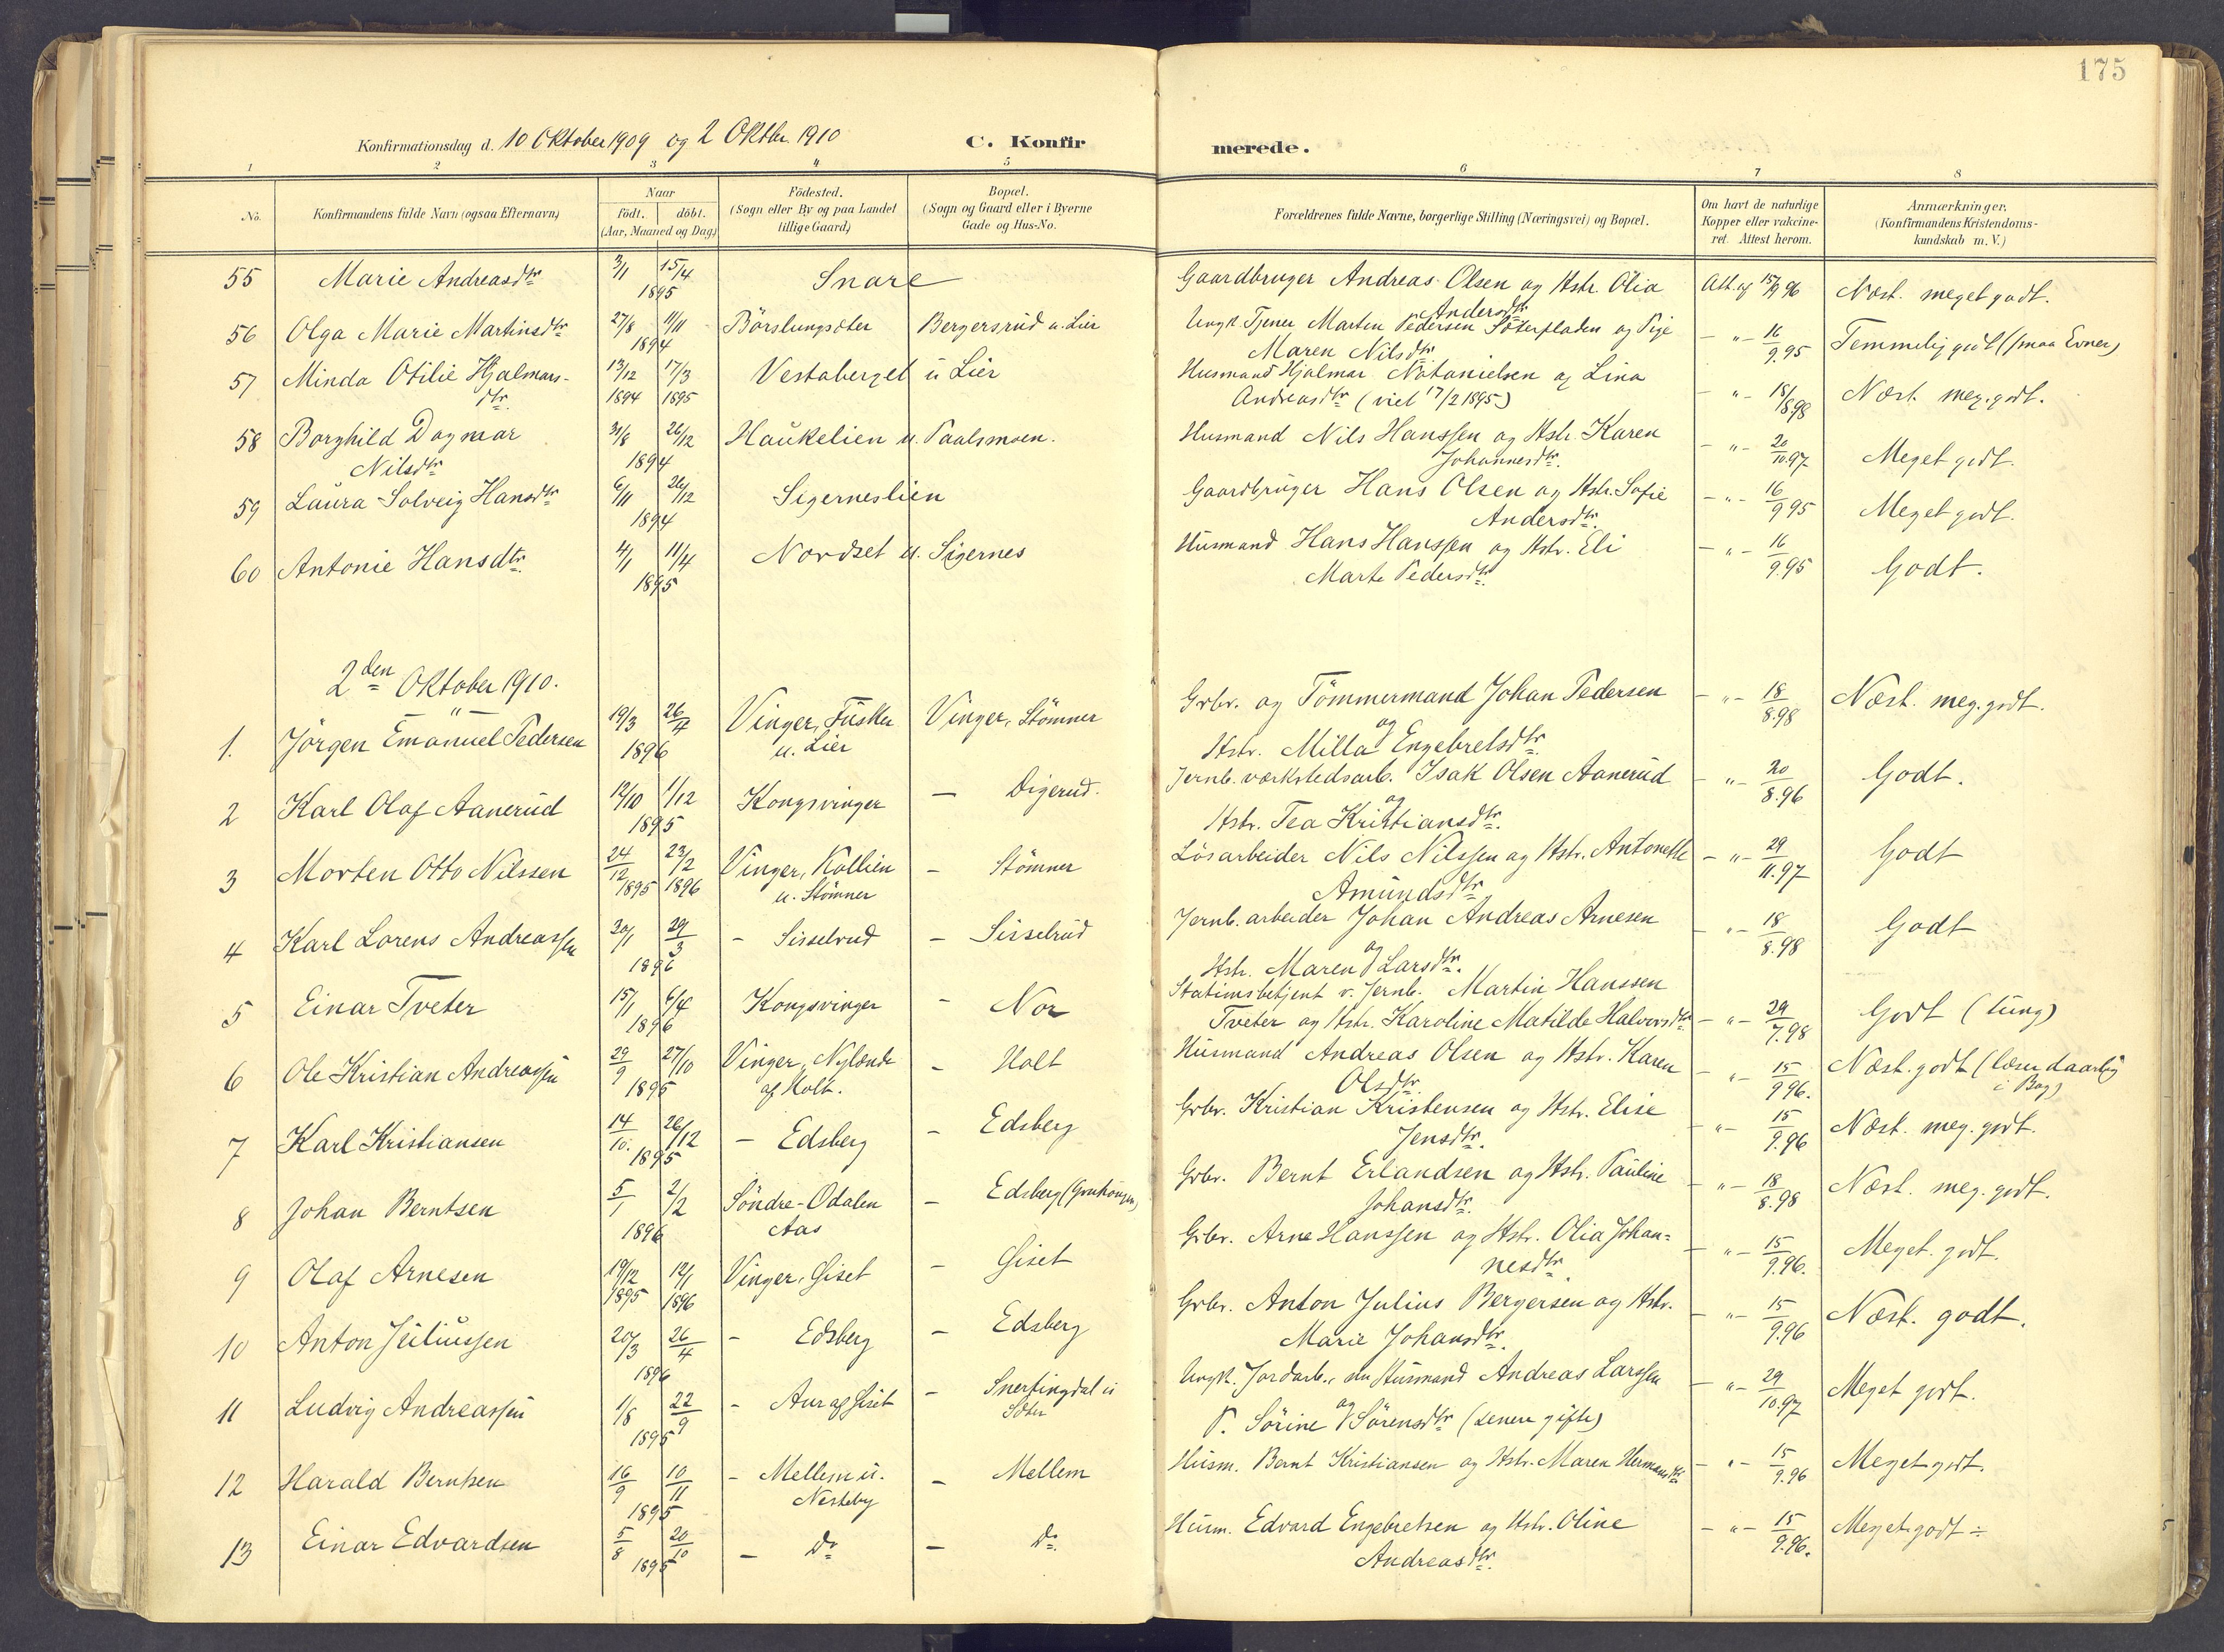 175
Konfirmationsdag d. 10 Oktober 1909 og 2 Oktbr. 1910 C. Konfirmerede.
1 2 3 4 5 6 7 8
No. Konfirmandens fulde Navn (ogsaa Efternavn) Naar födt. döbt. (Aar, Maaned og Dag) Födested. (Sogn eller By og paa Landet tillige Gaard) Bopæl. (Sogn og Gaard eller i Byerne Gade og Hus-No. Forældrenes fulde Navne, borgerlige Stilling (Næringsvei) og Bopæl. Om havt de naturlige Kopper eller vakcineret. Attest herom. Anmærkninger. (Konfirmandens Kristendomskundskab m. V.)
55 Marie Andreasdtr 3/1 15/4 1895 Snare Gaardbruger Andreas Olsen og Hstr. Olia Andersdtr Att. af 15/9 96 Næst. meget godt.
56 Olga Marie Martinsdtr 27/8 11/11 1894 Börslungsæter Bergersrud u. Lier Ungk. Tjener Martin Pedersen Sæterpladen og Pige Maren Nilsdtr - " - 16/9.95 Temmelig godt (smaa Evner)
57 Minda Otilie Hjalmarsdtr. 13/12 1894 17/3 1895 Vestaberget u Lier Husmand Hjalmar Natanielsen og Lina Andreasdtr (viet 17/2 1895) - " - 18/8.98 Næst. meg. godt.
58 Borghild Dagmar Nilsdtr 31/8 26/12 1894 Haukelien u. Paalsmoen. Husmand Nils Hanssen og Hstr. Karen Johannesdtr. - " - 20/10.97 Meget godt.
59 Laura Solveig Hansdtr 6/11 26/12 1894 Sigerneslien Gaardbruger Hans Olsen og Hstr. Sofie Andersdtr. - " - 16/9 95 Meget godt.
60 Antonie Hansdtr. 4/1 11/4 1895 Nordset u. Sigernes Husmand Hans Hanssen og Hstr. Eli Marte Pedersdtr. - " - 16/9.95 Godt.
2den Oktober 1910.
1. Jörgen Emanuel Pedersen 19/3 26/4 1896 Vinger, Fusker u. Lier Vinger, Stömner Grbr. og Tömmermand Johan Pedersen og Hstr. Milla Engebretsdtr. - " - 18/8.98 Næst. meg. godt.
2 Karl Olaf Aanerud 12/10 1/12 1895 Kongsvinger — Digerud. Jernb. værkstedsarb. Isak Olsen Aanerud og Hstr. Tea Kristiansdtr. - " - 20/8.96 Godt.
3 Morten Otto Nilssen 24/12 1895 23/2 1896 Vinger, Kollien u. Stömner - Stömner Lösarbeider Nils Nilssen og Hstr. Antonette Amundsdtr - " - 29/11.97 Godt
4 Karl Lorens Andreassen 20/1 29/3 1896 - Sisselrud - Sisselrud Jernb. arbeider Johan Andreas Arnesen og Hstr. Maren Larsdtr. - " - 18/8.98 Godt
5 Einar Tveter 15/1 6/4 1896 Kongsvinger - Nor Stationsbetjent v. Jernb. Martin Hanssen Tveter og Hstr. Karoline Matilde Halvorsdtr - " - 29/7.98 Godt (tung)
6 Ole Kristian Andreassen 29/9 27/10 1895 Vinger, Nylænde af Holt. - Holt Husmand Andreas Olsen og Hstr. Karen Olsdtr - " - 15/9 96. Næst. godt (læser daarlig i Bog)
7 Karl Kristiansen 14/10. 26/12 1895 - Edsberg - Edsberg Grbr. Kristian Kristensen og Hstr. Elise Jensdtr. - " - 15/9.96 Næst. meg. godt.
8 Johan Berntsen 5/1 2/2 1896 Söndre-Odalen Aas - Edsberg Grbr. Bernt Erlandsen og Hstr. Pauline Johansdtr. - " - 18/8.98 Næst. meg. godt.
9 Olaf Arnesen 19/12 1895 12/1 1896 Vinger, Giset - Giset Grbr. Arne Hanssen og Hstr. Olia Johannesdtr - " - 15/9.96. Meget godt.
10 Anton Juliussen 20/3 26/4 1896 - Edsberg - Edsberg Grbr. Anton Julius Bergersen og Hstr. Marie Johansdtr. - " - 15/9.96 Næst. godt.
11 Ludvig Andreassen 1/8 22/9 1895 - Aur af Giset - Snertingdal u Sæter Ungk. Jordarb., nu Husmand Andreas Larssen og P. Sörine Sörensdtr (senere gifte) - " - 29/10.97 Meget godt.
12 Harald Berntsen 16/9 10/11 1895 - Mellem u. Nesteby - Mellem Husm. Bernt Kristiansen og Hstr. Maren Hermansdtr - " - 15/9.96 Meget godt.
13 Einar Edvardsen 5/8 20/10 1895 - Do - Do. Husm. Edvard Engebretsen og Hstr. Oline Andreasdtr. - " - 15/9.96. Meget godt ÷